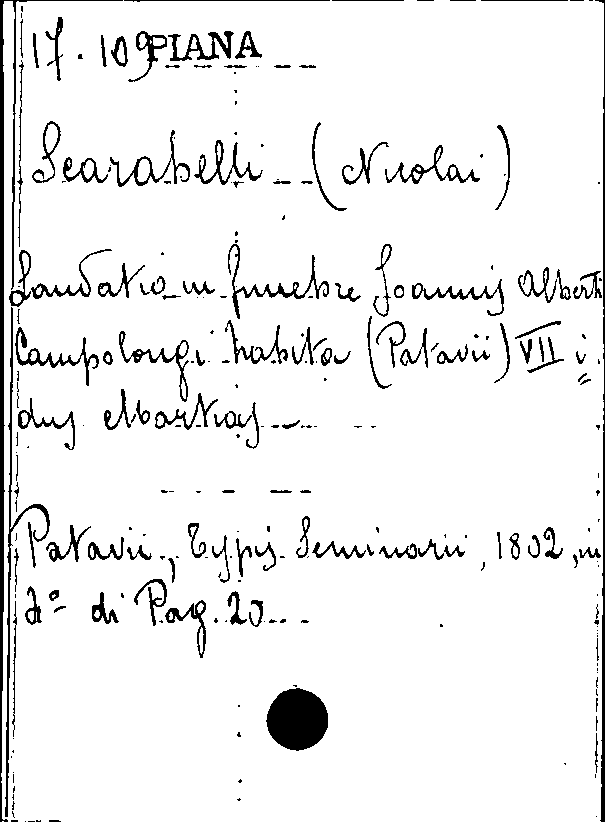 17. 109 PIANA
Scarabelli (Nicolai)
Laudatio in funebre Joannis Alberti
Campolongi habita (Patavii) VII i=
dus Martias
Patavii, Typis Seminarii, 1802, in
4º di Pag. 20